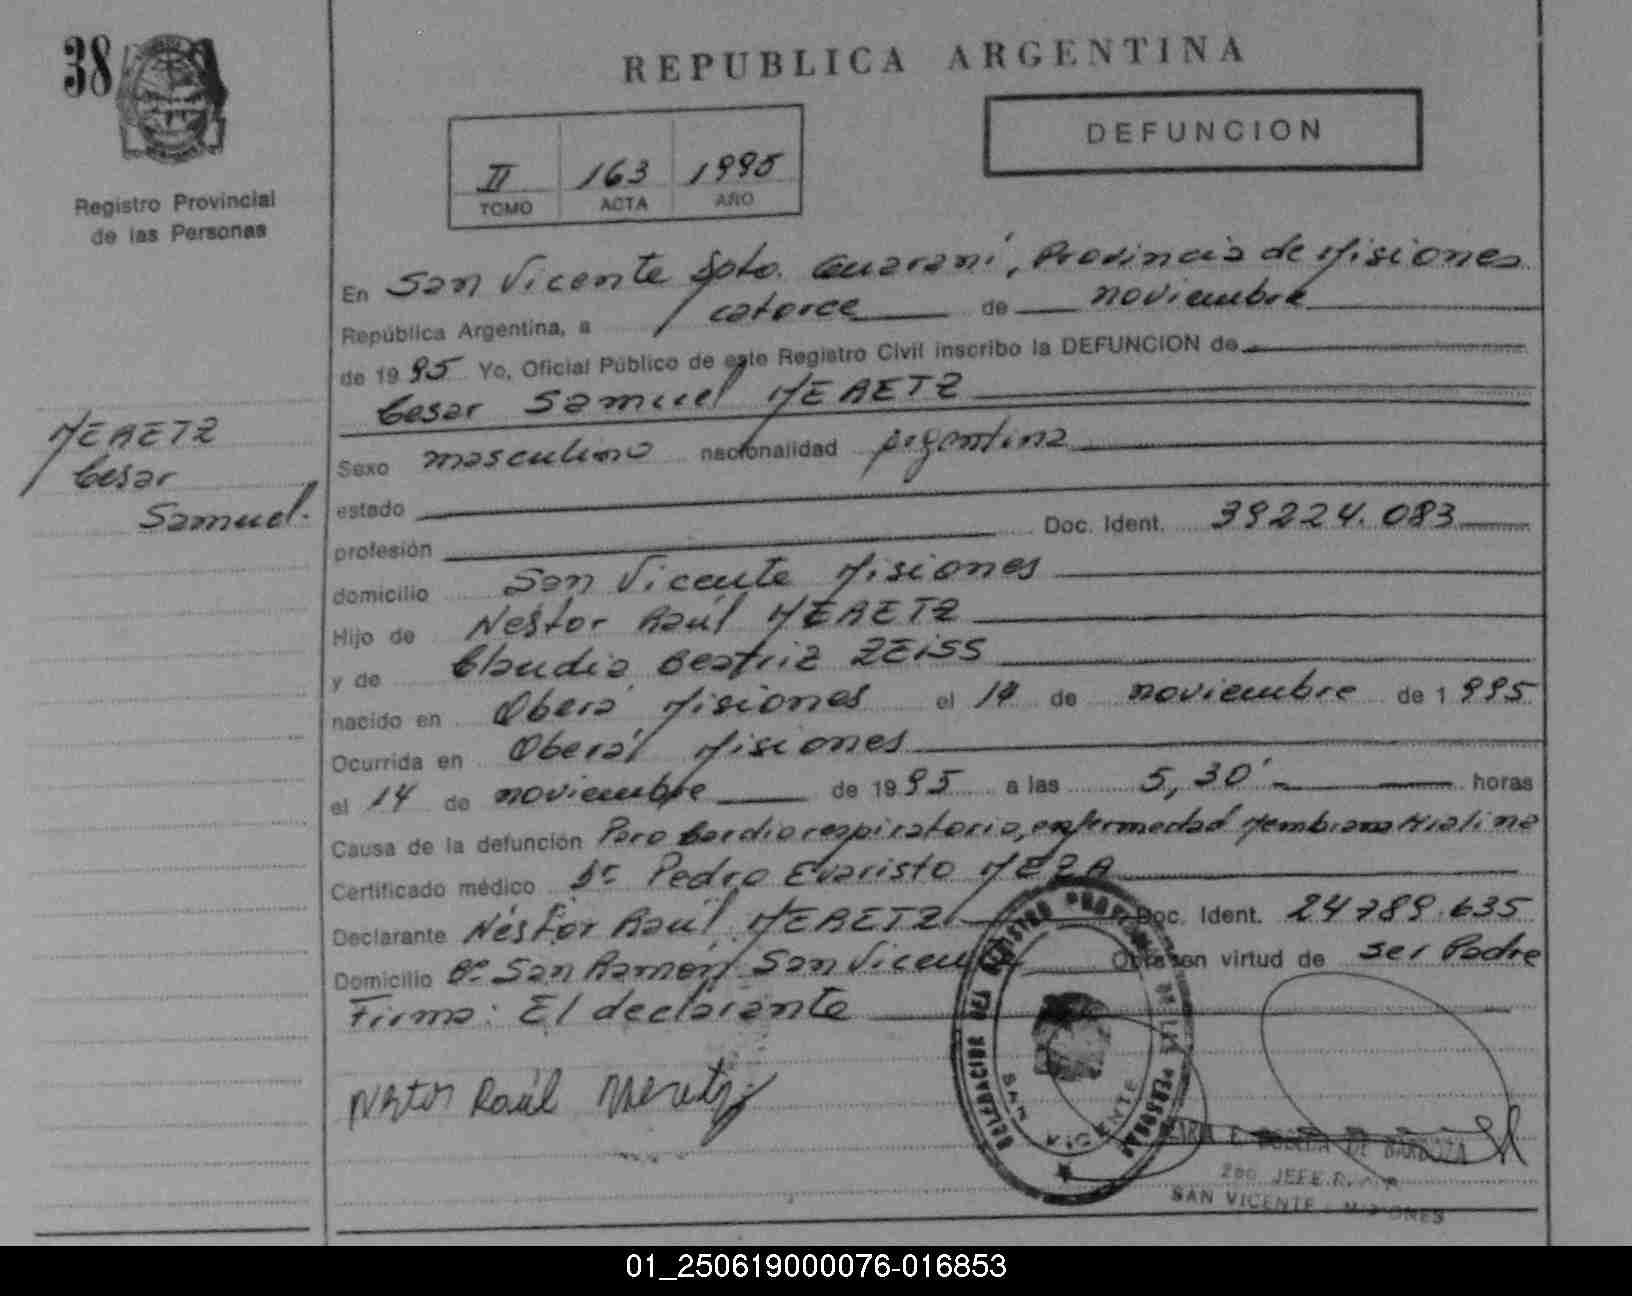 38
REPUBLICA ARGENTINA
DEFUNCION
II 163 1995
TOMO ACTA AÑO
Registro Provincial
de las Personas
En San Vicente Dpto. Guaraní, Provincia de Misiones
República Argentina, a catorce de noviembre
de 1995 Yo, Oficial Público de este Registro Civil inscribo la DEFUNCION de
Cesar Samuel MERETZ
MERETZ
Cesar
Samuel.
Sexo masculino nacionalidad argentina
estado
profesión Doc. Ident. 39224.083
domicilio San Vicente Misiones
Hijo de Nestor Raúl MERETZ
y de Claudia Beatriz ZEISS
nacido en Oberá Misiones el 14 de noviembre de 1995
Ocurrida en Oberá Misiones
el 14 de noviembre de 1995 a las 5,30' horas
Causa de la defunción Paro Cardiorespiratorio, enfermedad Membrana Hialina
Certificado médico Dr Pedro Evaristo MEZA
Declarante Néstor Raúl MERETZ Doc. Ident. 24789.635
Domicilio Bº San Ramón San Vicente Obra en virtud de ser Padre
Firma: El declarante
Nestor Raúl Meretz
DELEGACION DEL REGISTRO PROVINCIAL DE LAS PERSONAS
SAN VICENTE
DE BARBOZA
JEFE R.
SAN VICENTE - MISIONES
01_250619000076-016853